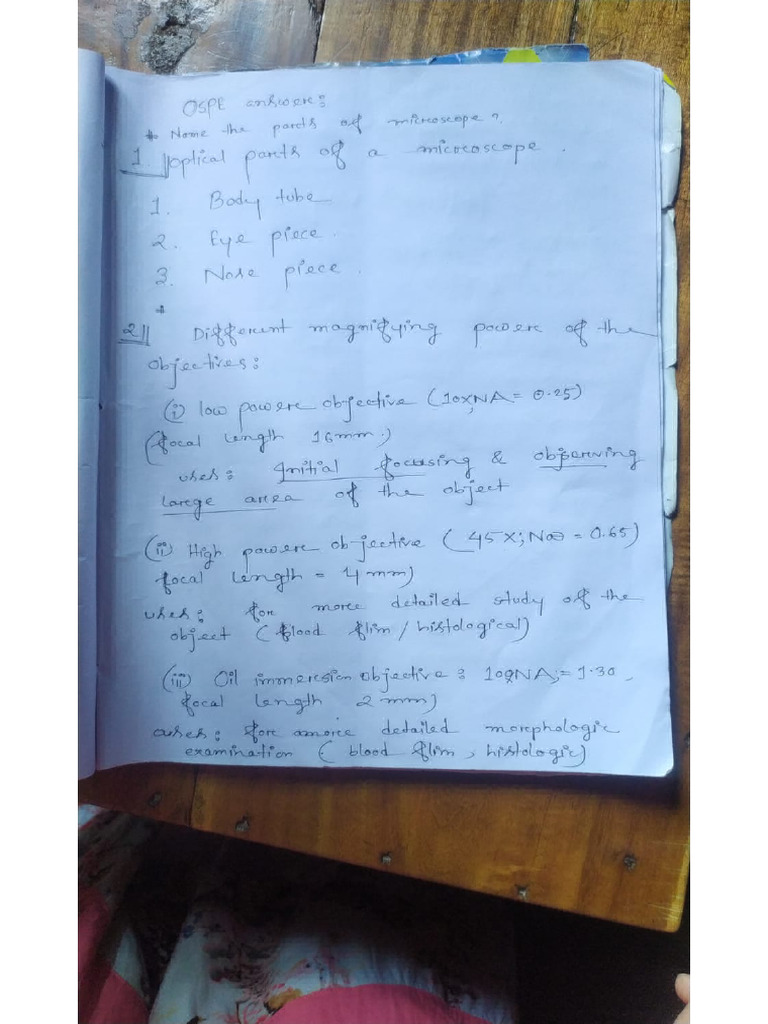 OSPE answer:
* Name the parts of microscope?
1. Optical parts of a microscope.
1. Body tube
2. Eye piece.
3. Nose piece.
2|| Different magnifying power of the
objectives:
(i) low power objective (10x,NA= 0.25)
(focal length 16mm.)
uses: Initial focusing & observing
large area of the object
(ii) High power objective (45X; NA = 0.65)
focal length = 4mm)
uses: for more detailed study of the
object (blood flim / histological)
(iii) Oil immersion objective: 100x NA,= 1.30,
focal length 2mm)
uses: for a more detailed morphologic
examination (blood flim, histologic)